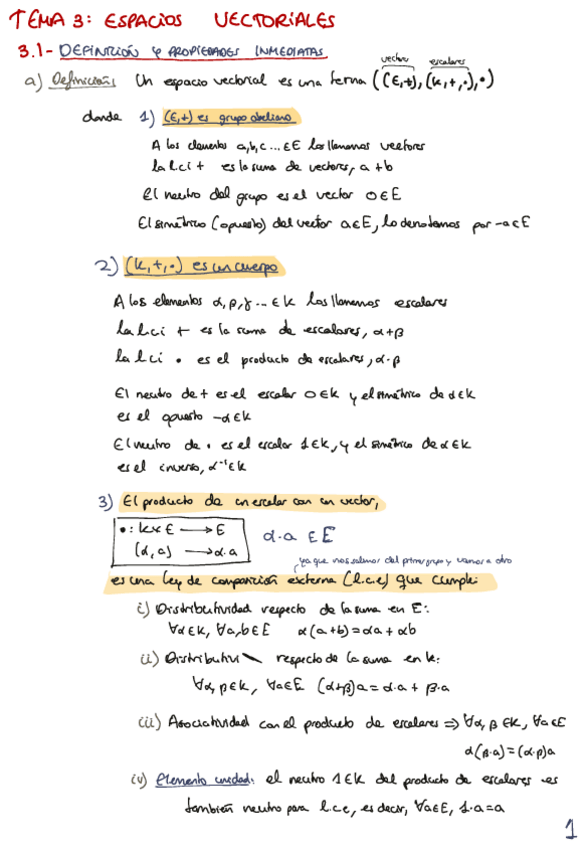 TEMA 3: ESPACIOS VECTORIALES
3.1- DEFINICIÓN Y PROPIEDADES INMEDIATAS
vectores escalares
a) Definición: Un espacio vectorial es una terna ((E,+), (K,+,·),·)
donde 1) (E,+) es grupo abeliano
A los elementos a,b,c... ∈E los llamamos vectores
la l.c.i + es la suma de vectores, a+b
El neutro del grupo es el vector 0∈E
El simétrico (opuesto) del vector a∈E, lo denotamos por -a∈E
2) (K,+,·) es un cuerpo
A los elementos α,β,γ... ∈K los llamamos escalares
la l.c.i + es la suma de escalares, α+β
la l.c.i · es el producto de escalares, α·β
El neutro de + es el escalar 0∈K y el simétrico de α∈K
es el opuesto -α∈K
El neutro de · es el escalar 1∈K, y el simétrico de α∈K
es el inverso, α⁻¹∈K
3) El producto de un escalar con un vector,
·: K×E → E
(α,a) → α·a
α·a ∈E
ya que nos salimos del primer grupo y vamos a otro
es una ley de composición externa (l.c.e) que cumple:
i) Distributividad respecto de la suma en E:
∀α∈K, ∀a,b∈E α(a+b)=αa+αb
ii) Distributivi respecto de la suma en K:
∀α,β∈K, ∀a∈E (α+β)a=α·a+β·a
iii) Asociatividad con el producto de escalares ⇒ ∀α,β∈K, ∀a∈E
α(β·a)=(α·β)a
iv) Elemento unidad: el neutro 1∈K del producto de escalares es
también neutro para l.c.e, es decir, ∀a∈E, 1·a=a
1